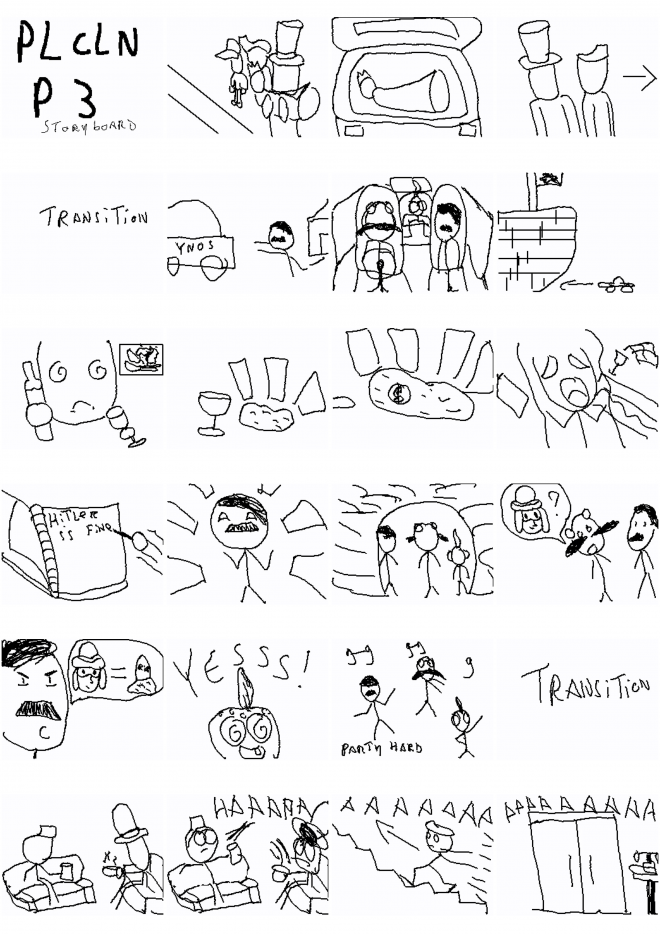 PLCLN
P 3
STORYBOARD
TRANSITION
YNOS
$
HiTLER
is FINE
?
=
YESSS!
PARTY HARD
TRANSiTiON
HAAAAA
AAAAAAA
AAAAAAAA